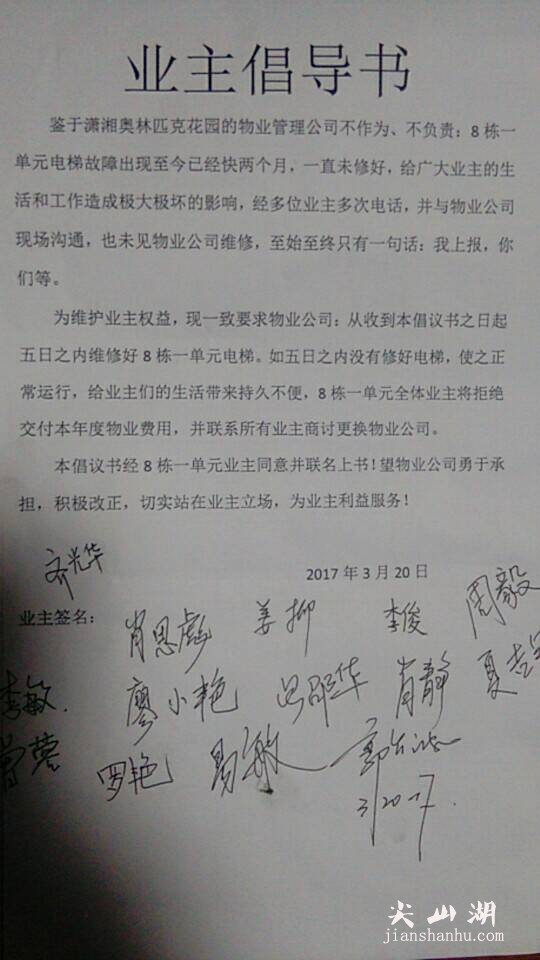 业主倡导书
鉴于潇湘奥林匹克花园的物业管理公司不作为、不负责：8 栋一
单元电梯故障出现至今已经快两个月，一直未修好，给广大业主的生
活和工作造成极大极坏的影响，经多位业主多次电话，并与物业公司
现场沟通，也未见物业公司维修，至始至终只有一句话：我上报，你
们等。
为维护业主权益，现一致要求物业公司：从收到本倡议书之日起
五日之内维修好 8 栋一单元电梯。如五日之内没有修好电梯，使之正
常运行，给业主们的生活带来持久不便，8 栋一单元全体业主将拒绝
交付本年度物业费用，并联系所有业主商讨更换物业公司。
本倡议书经 8 栋一单元业主同意并联名上书！望物业公司勇于承
担，积极改正，切实站在业主立场，为业主利益服务！
齐光华
2017 年 3 月 20 日
业主签名：
肖思彪 姜柳 李俊 周毅
李敏 廖小艳 肖静
曾蓉 罗艳 易敏
尖山湖
jianshanhu.com